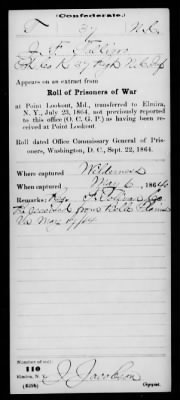 (Confederate.)
T 37 N.C.
J. F.
Co. K 37 Reg't N.C.
Appears on an extract from
Roll of Prisoners of War
at Point Lookout, Md., transferred to Elmira,
N. Y., July 23, 1864, not previously reported to
this office (O. C. G. P.) as having been received
at Point Lookout.
Roll dated Office Commissary General of Prisoners,
Washington, D. C., Sept. 22, 1864.
Where captured Wilderness
When captured May 6, 1864
Remarks:
received from Belle Plain
Va May 17/64
Number of roll:
110
Elmira, N. Y.
J. Jacobson
(639b) Copyist.